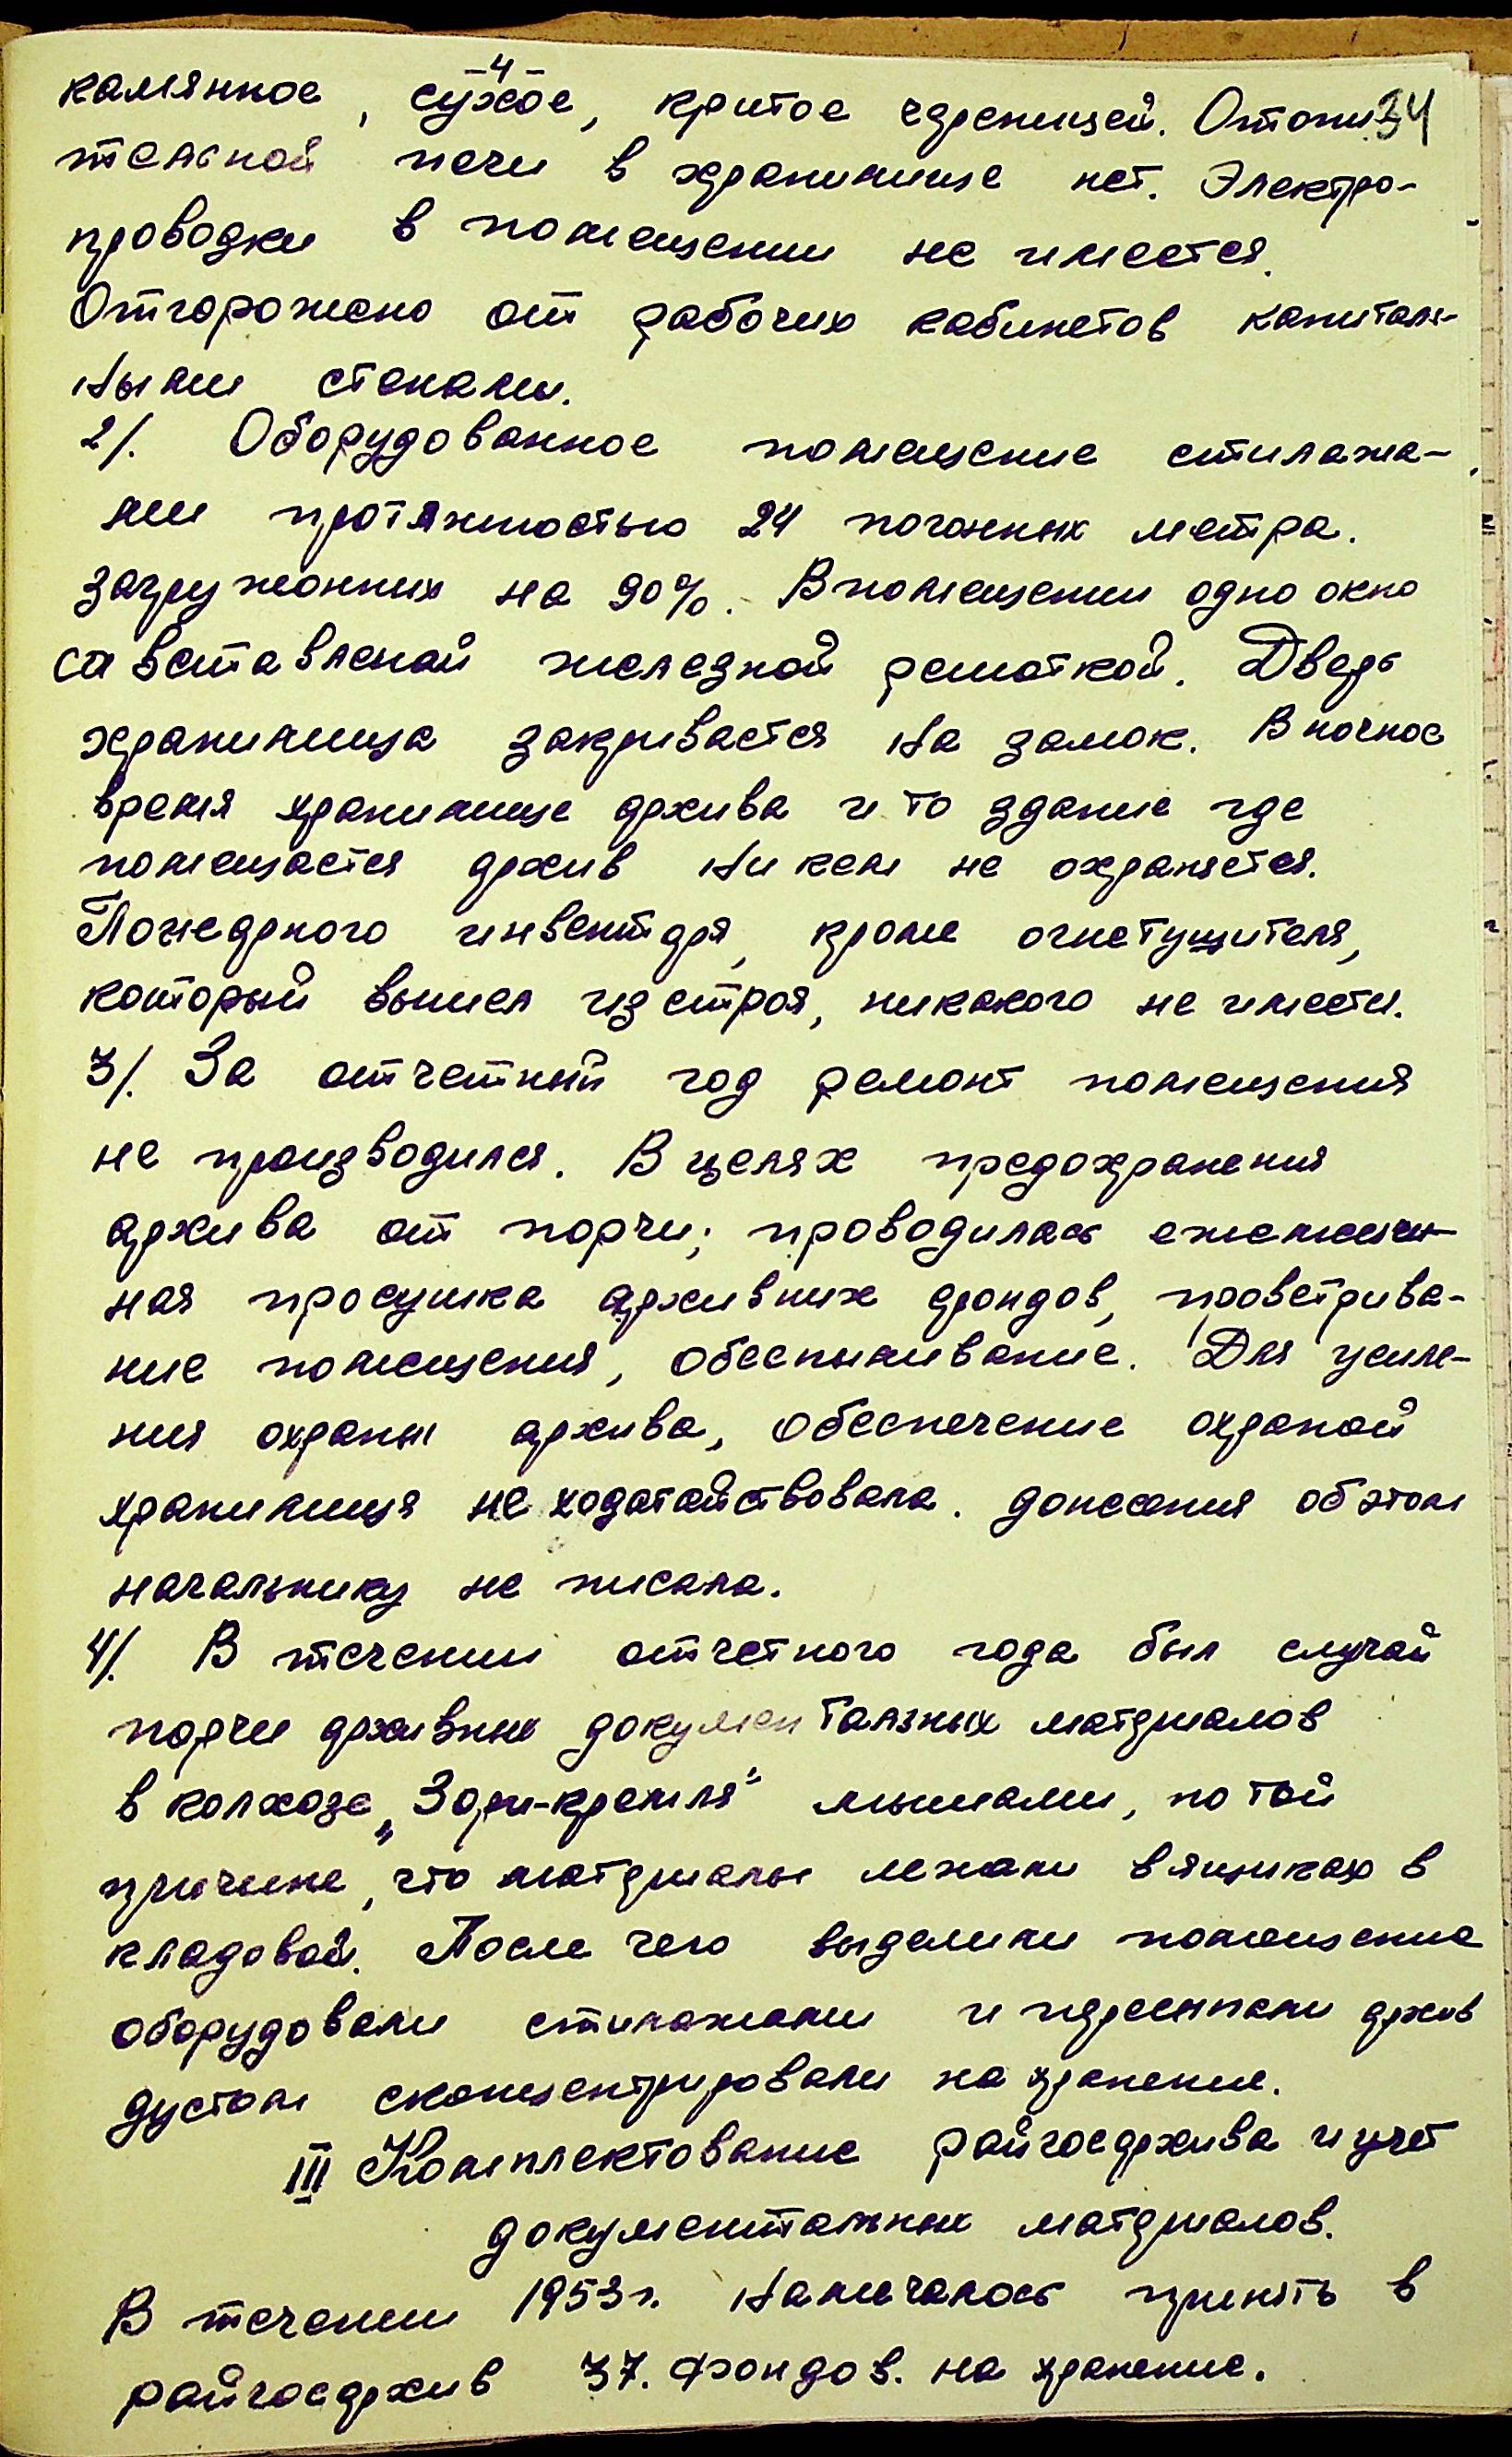 -4-
34
камянное, сухое, критое черепицей. Отопи-
тельной печи в хранилище нет. Электро-
проводки в помещении не имеется.
Отгорожено от рабочих кабинетов капиталь-
ными стенами.
2/. Оборудованное помещение стилажа-
ми протяжностью 24 погонных метра.
загружонних на 90%. В помещении одно окно
са вставленай железной решоткой. Дверь
хранилища закривается на замок. В ночное
время хранилище архива и то здание где
помещается архив никем не охраняется.
Пожарного инвентаря, кроме огнетущителя,
который вышел из строя, никакого не имеется.
3/. За отчетный год ремонт помещения
не производился. В целях предохранения
архива от порчи; проводилась ежемесяч-
ная просушка архивних фондов, проветрива-
ние помещения, обеспыливание. Для усиле-
ния охраны архива, обеспечение охраной
хранилища не ходатайствовала. донесения об этом
начальнику не писала.
4/. В течении отчетного года был случай
порчи архивных документальных материалов
в колхозе „Зори-кремля" мышами, по той
причине, что материалы лежали в ящиках в
кладовой. После чего выделили помещение
оборудовали стилажами и пересипали архив
дустом сконцентрировали на хранение.
III Комплектование райгосархива и учет
документальных материалов.
В течении 1953 г. намечалось принять в
райгосархив 37. фондов. на хранение.